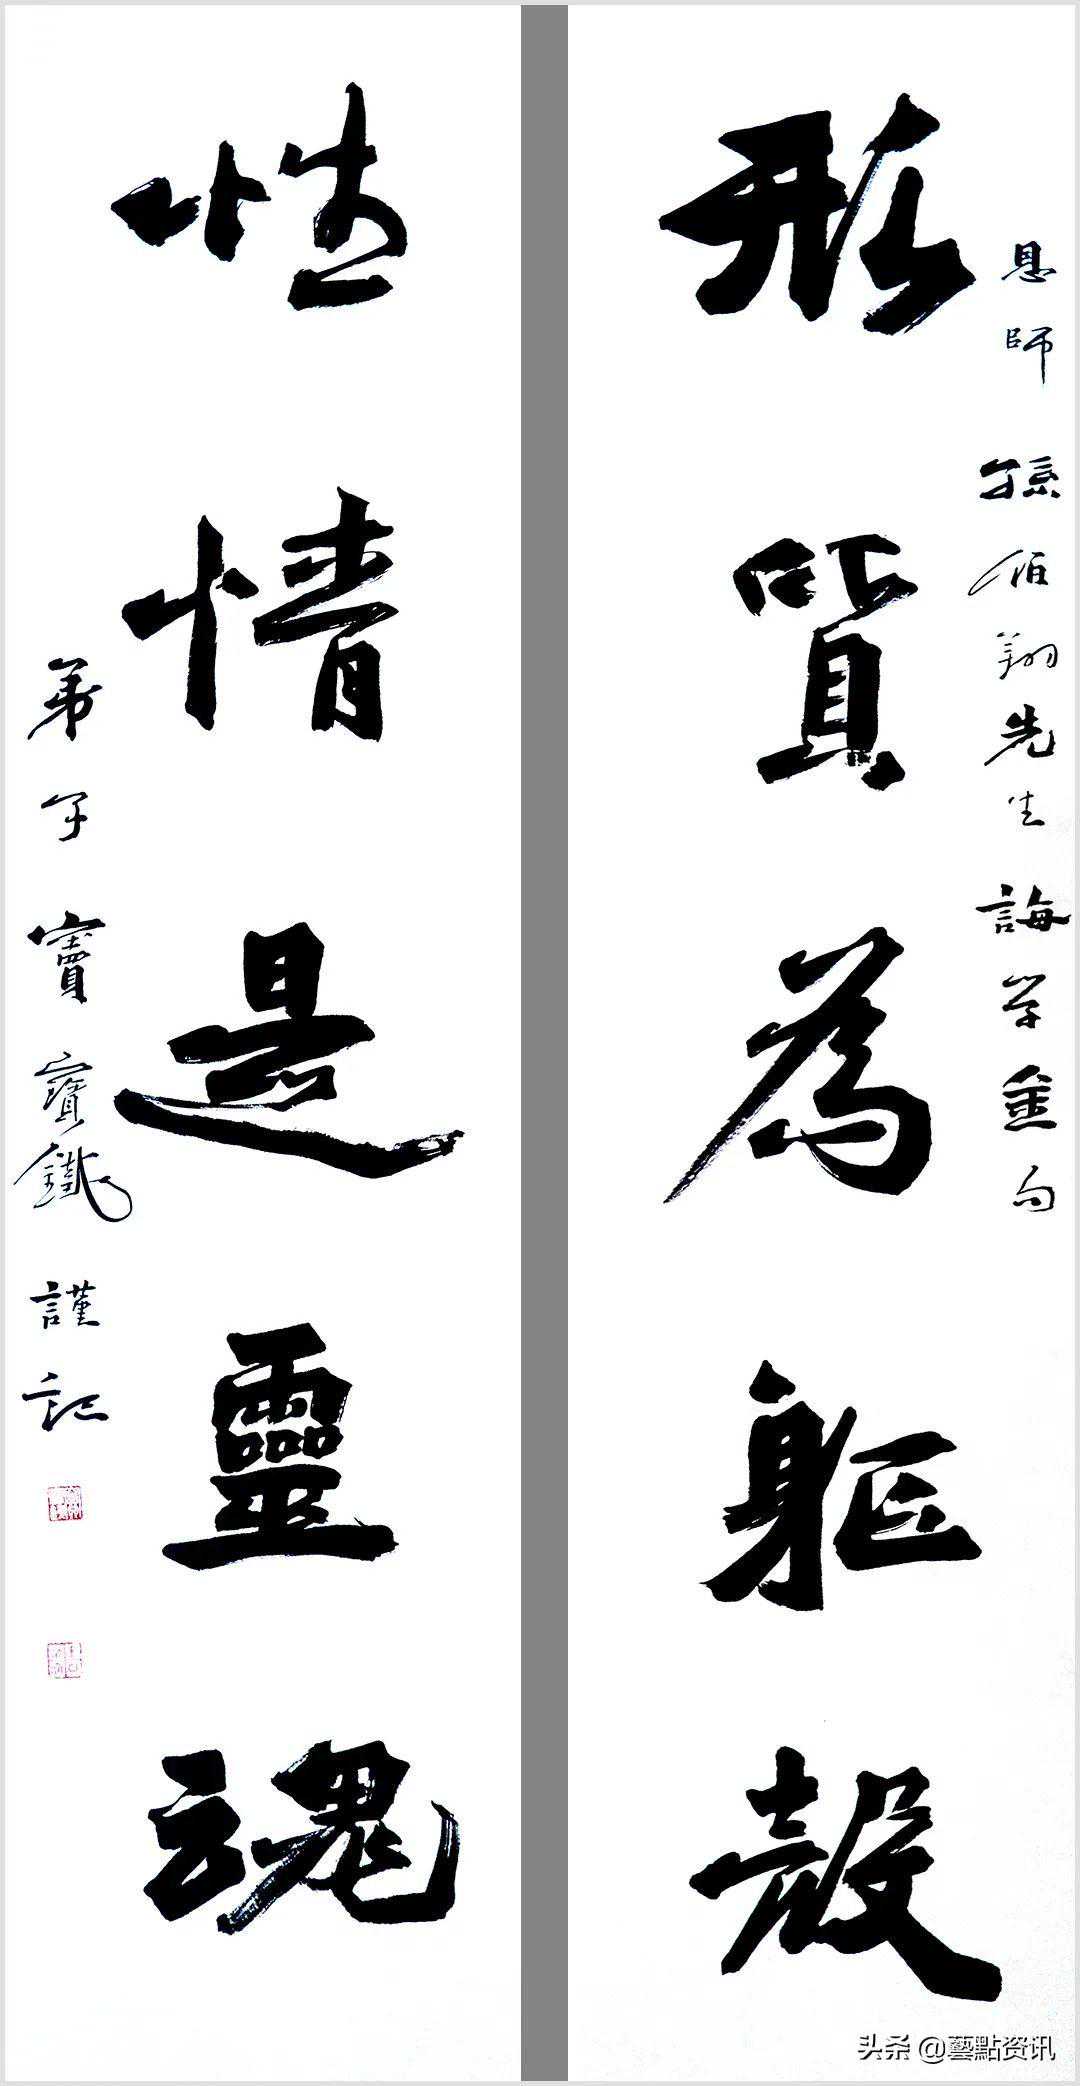 恩師孫伯翔先生誨学金句
形質為軀殼
性情是靈魂
弟子竇寶鐵謹記
头条 @藝點资讯